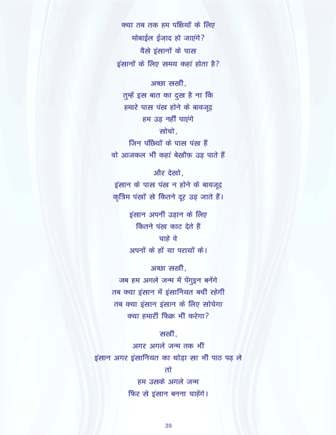 क्या तब तक हम पंछियों के लिए
मोबाईल ईजाद हो जाएंगे?
वैसे इंसानों के पास
इंसानों के लिए समय कहां होता है?
अच्छा सखी,
तुम्हें इस बात का दुख है ना कि
हमारे पास पंख होने के बावजूद
हम उड़ नहीं पाएंगे
सोचो,
जिन पंछियों के पास पंख हैं
वो आजकल भी कहां बेखौफ़ उड़ पाते हैं
और देखो,
इंसान के पास पंख न होने के बावजूद
कृत्रिम पंखों से कितने दूर उड़ जाते हैं।
इंसान अपनी उड़ान के लिए
कितने पंख काट देते हैं
चाहे वे
अपनों के हों या परायों के।
अच्छा सखी,
जब हम अगले जन्म में पेंगुइन बनेंगे
तब क्या इंसान में इंसानियत बची रहेगी
तब क्या इंसान इंसान के लिए सोचेगा
क्या हमारी फिक्र भी करेगा?
सखी,
अगर अगले जन्म तक भी
इंसान अगर इंसानियत का थोड़ा सा भी पाठ पढ़ ले
तो
हम उसके अगले जन्म
फिर से इंसान बनना चाहेंगे।